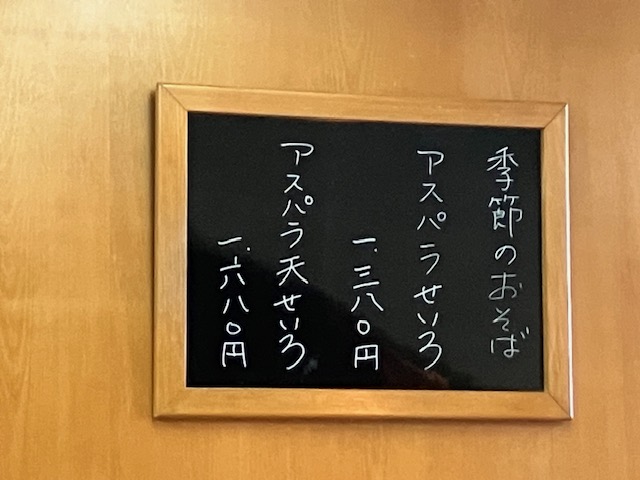 季節のおそば
アスパラせいろ
一.三八〇円
アスパラ天せいろ
一.六八〇円